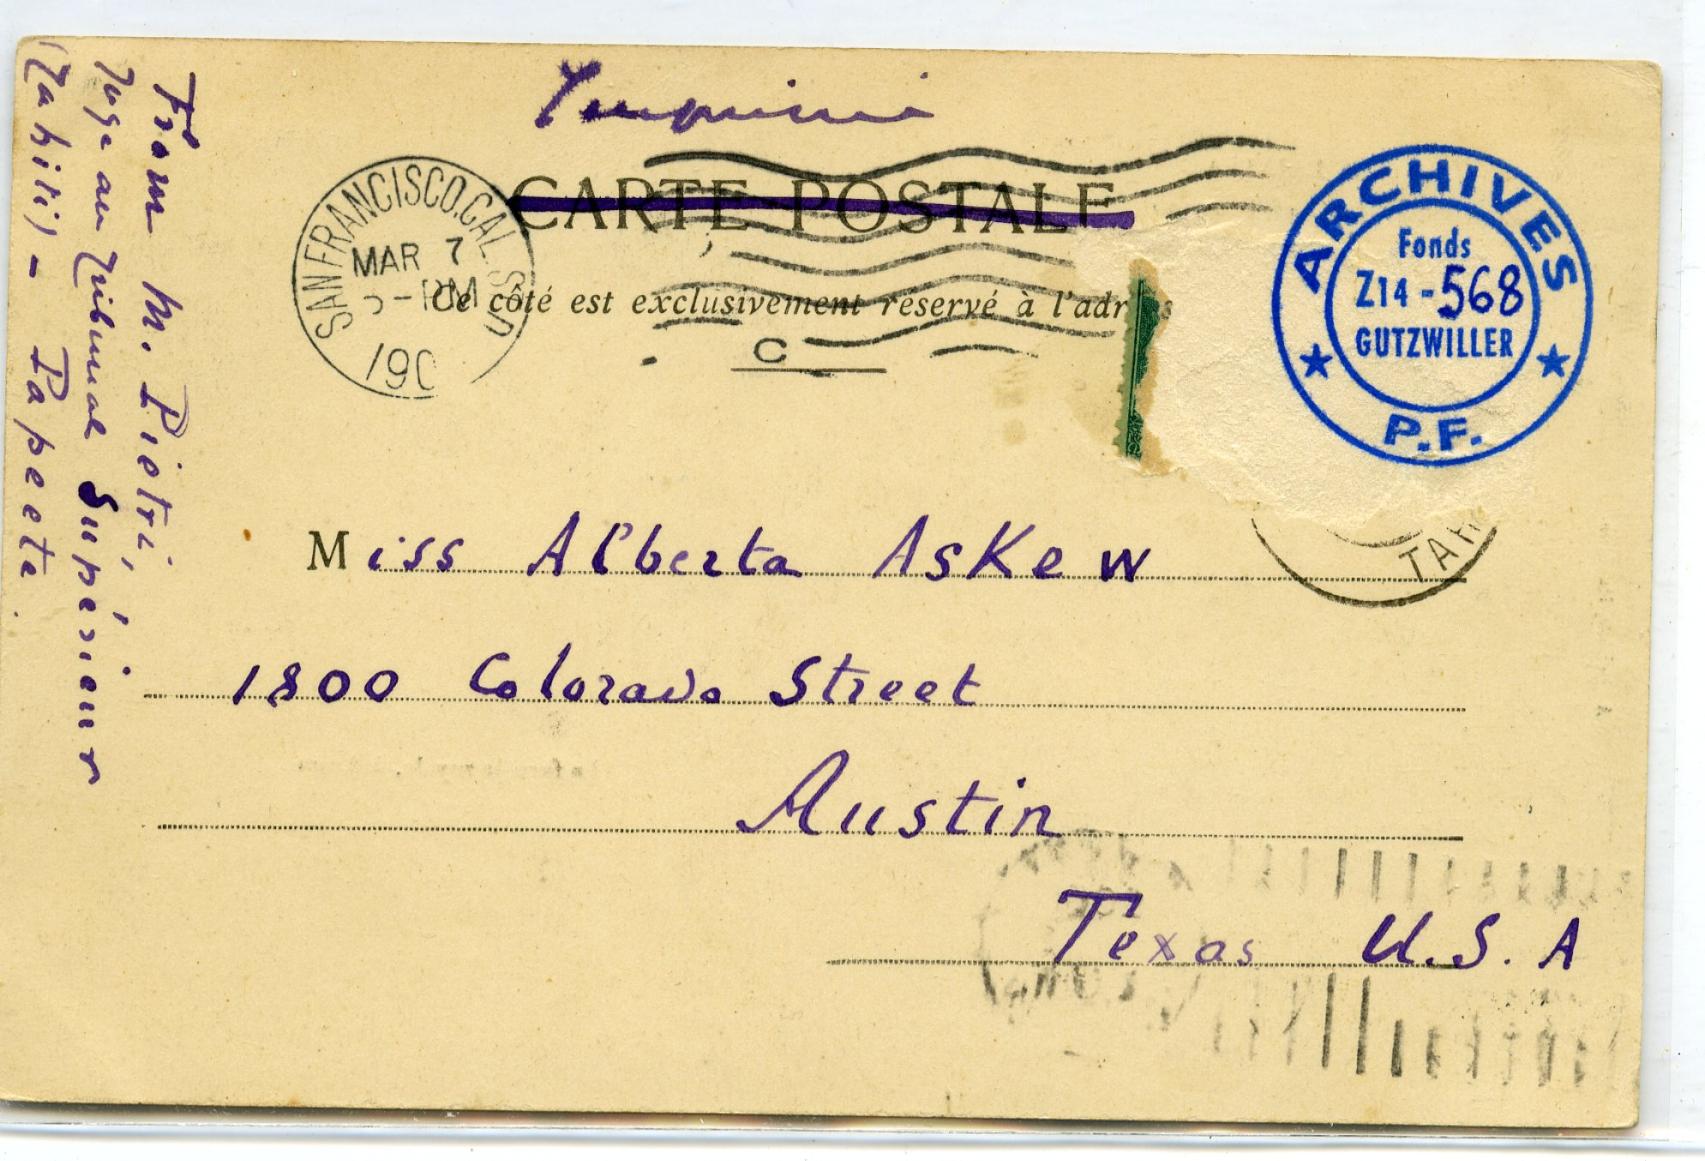 Imprimé
CARTE POSTALE
Ce côté est exclusivement réservé à l'adres
SAN FRANCISCO.CAL. U.S.
MAR 7
-PM
190
C
ARCHIVES
Fonds
Z14-568
GUTZWILLER
P.F.
TAH
Miss Alberta Askew
1800 Colorado Street
Austin
Texas U.S.A
From M. Pietri,
Juge au Tribunal Supérieur
(Tahiti) - Papeete.